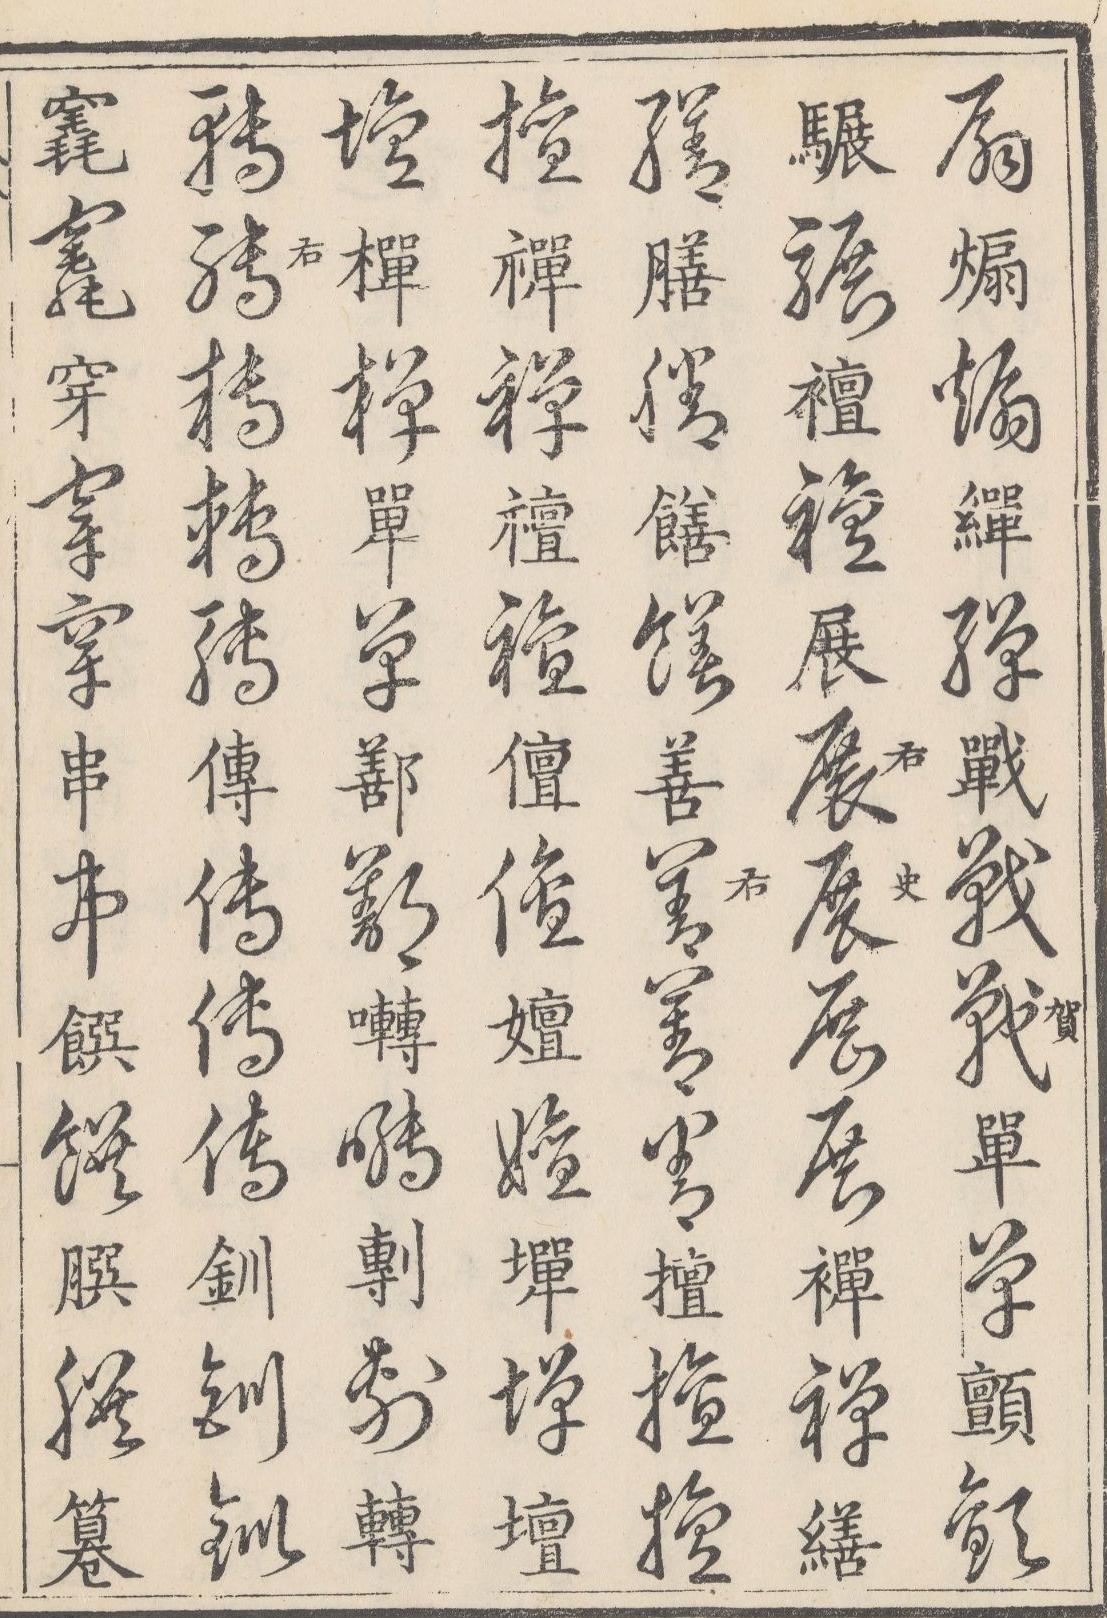 扇煽煽繟繟戰戰戰賀單單顫顫
騴騴襢襢展展右展史展展襌襌繕
繕膳膳饍饍善善右善善擅擅擅
擅禪禪禮禮儃儃嬗嬗墠墠壇
壇樿樿單單鄯鄯囀囀剸剸轉
轉轉右轉轉轉傳傳傳傳釧釧釧
竁竁穿穿穿串串饌饌膳膳篹